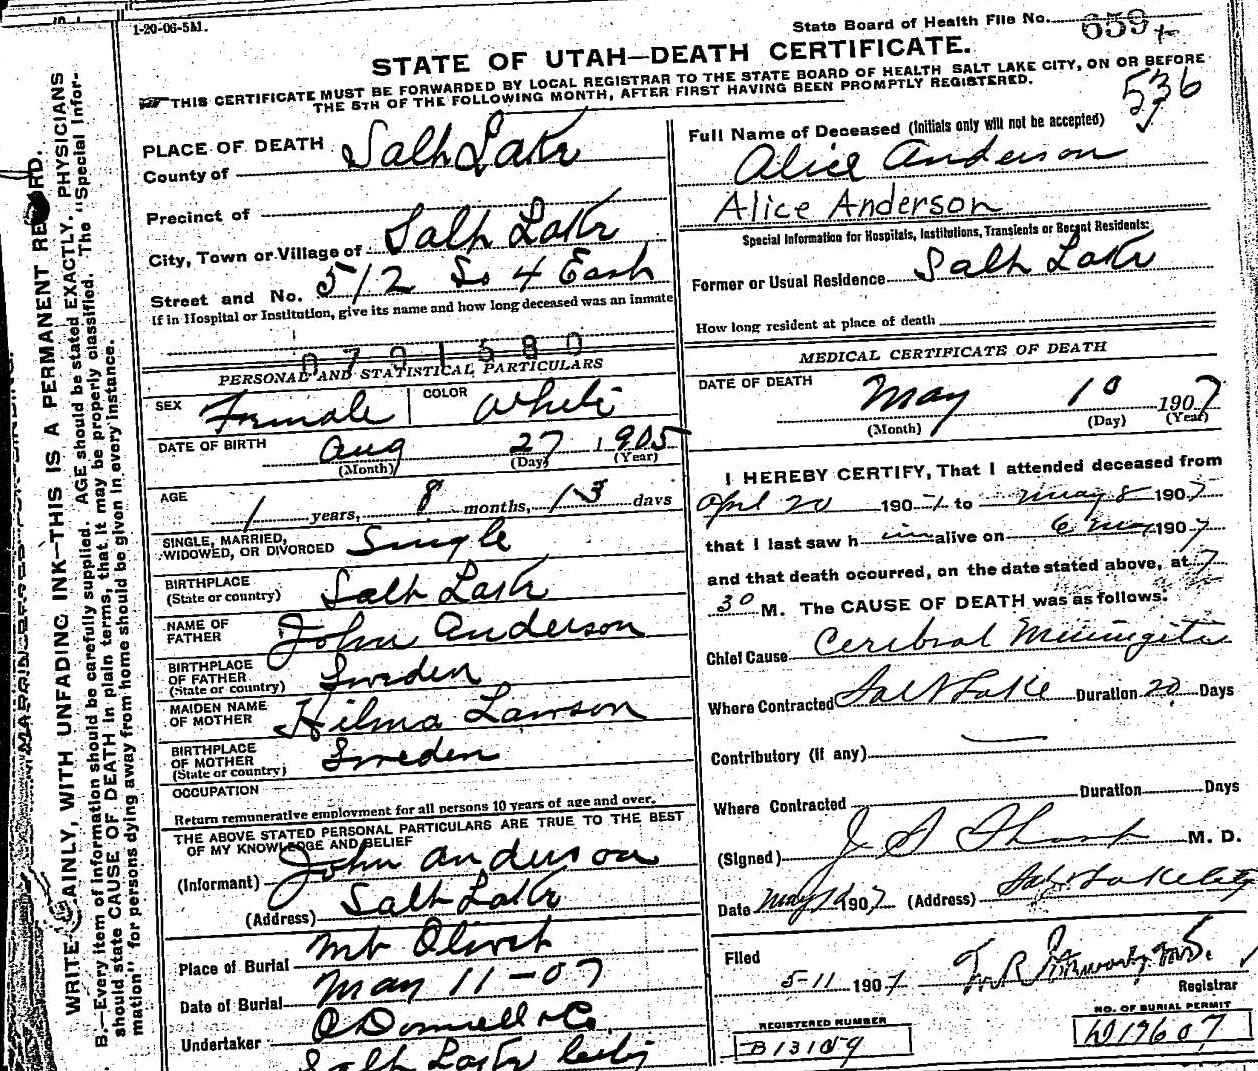 1-20-06-5M.
State Board of Health File No. 659
STATE OF UTAH—DEATH CERTIFICATE.
THIS CERTIFICATE MUST BE FORWARDED BY LOCAL REGISTRAR TO THE STATE BOARD OF HEALTH SALT LAKE CITY, ON OR BEFORE
THE 5TH OF THE FOLLOWING MONTH, AFTER FIRST HAVING BEEN PROMPTLY REGISTERED.
536
27
PLACE OF DEATH
County of Salt Lake
Precinct of
City, Town or Village of Salt Lake
Street and No. 512 So 4 East
If in Hospital or Institution, give its name and how long deceased was an inmate
0701580
PERSONAL AND STATISTICAL PARTICULARS
SEX Female COLOR White
DATE OF BIRTH Aug 27 1905
(Month) (Day) (Year)
AGE 1 years, 8 months, 13 days
SINGLE, MARRIED,
WIDOWED, OR DIVORCED Single
BIRTHPLACE
(State or country) Salt Lake
NAME OF
FATHER John Anderson
BIRTHPLACE
OF FATHER
(State or country) Sweden
MAIDEN NAME
OF MOTHER Hilma Lawson
BIRTHPLACE
OF MOTHER
(State or country) Sweden
OCCUPATION
Return remunerative employment for all persons 10 years of age and over.
THE ABOVE STATED PERSONAL PARTICULARS ARE TRUE TO THE BEST
OF MY KNOWLEDGE AND BELIEF
(Informant) John Anderson
(Address) Salt Lake
Place of Burial Mt Olivet
Date of Burial May 11-07
Undertaker O'Donnell & Co.
Salt Lake City
Full Name of Deceased (Initials only will not be accepted)
Alice Anderson
Alice Anderson
Special Information for Hospitals, Institutions, Transients or Recent Residents:
Former or Usual Residence Salt Lake
How long resident at place of death
MEDICAL CERTIFICATE OF DEATH
DATE OF DEATH May 10 1907
(Month) (Day) (Year)
I HEREBY CERTIFY, That I attended deceased from
April 20 1907 to May 8 1907
that I last saw h im alive on 6 May 1907
and that death occurred, on the date stated above, at 7
30 M. The CAUSE OF DEATH was as follows:
Chief Cause Cerebral Meningitis
Where Contracted Salt Lake Duration 20 Days
Contributory (if any)
Where Contracted Duration Days
(Signed) J S M. D.
Date May 1907 (Address) Salt Lake City
Filed
5-11 1907
Registrar
REGISTERED NUMBER
NO. OF BURIAL PERMIT
B13109
W19607
WRITE PLAINLY, WITH UNFADING INK—THIS IS A PERMANENT RECORD.
B.—Every item of information should be carefully supplied. AGE should be stated EXACTLY. PHYSICIANS
should state CAUSE OF DEATH in plain terms, that it may be properly classified. The "Special Infor-
mation" for persons dying away from home should be given in every instance.